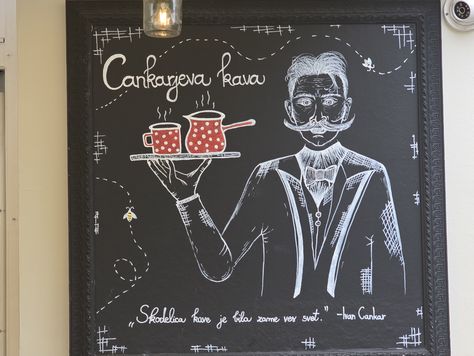 Cankarjeva kava
„Skodelica kave je bila zame ves svet.” -Ivan Cankar